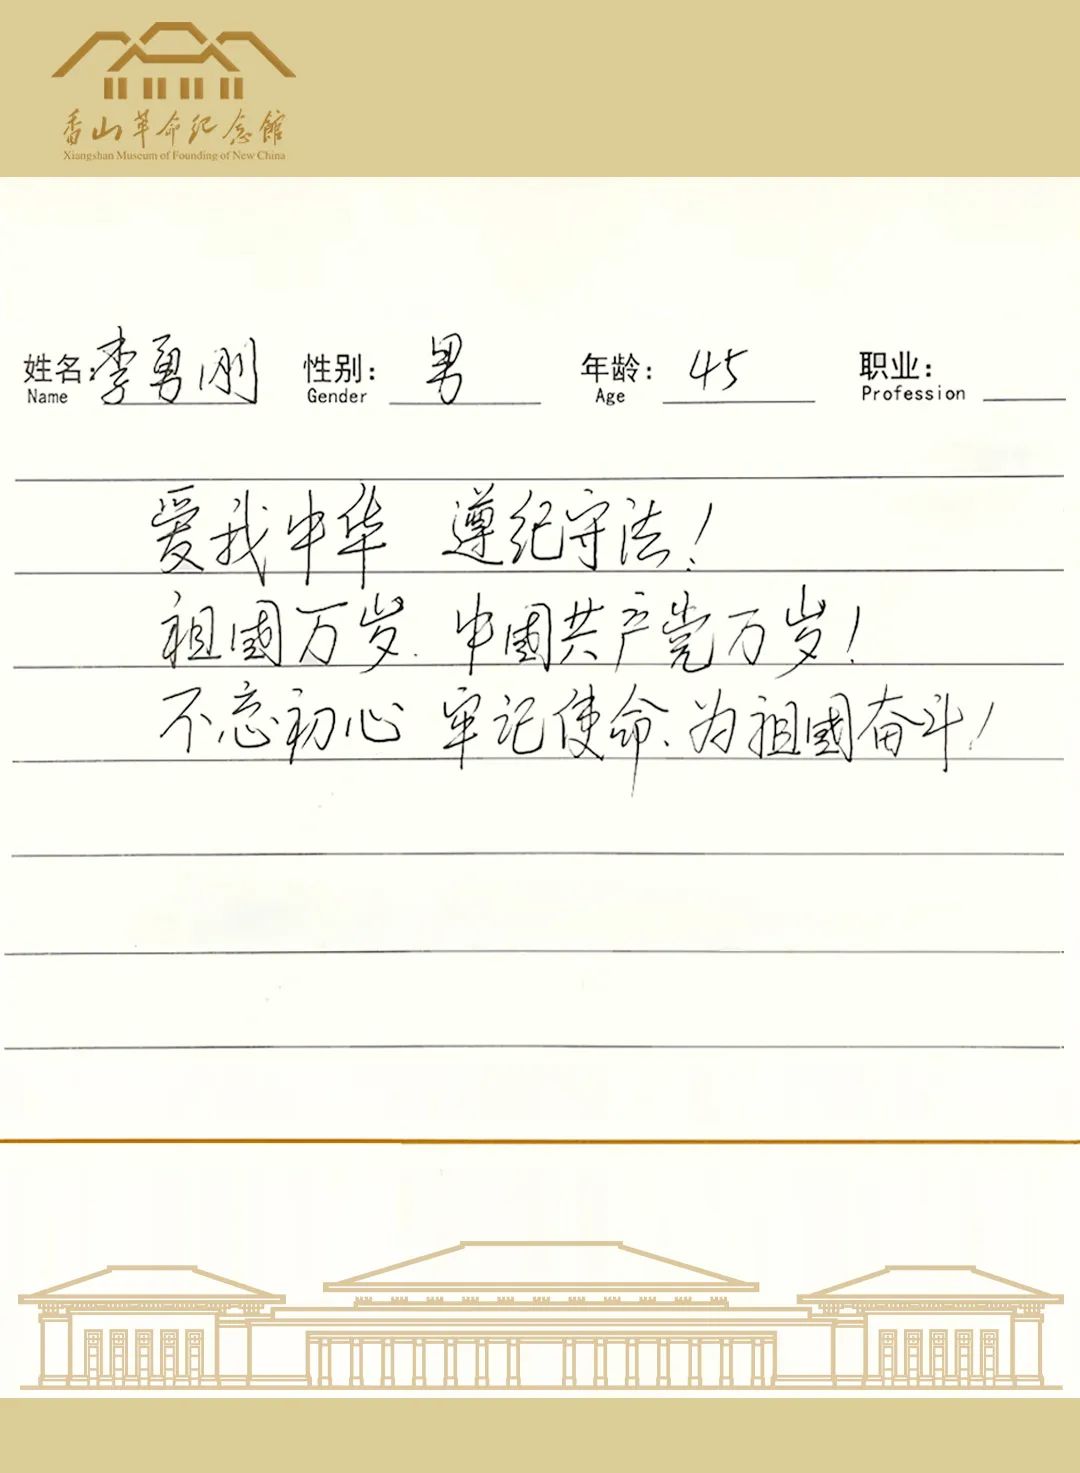 香山革命纪念館
Xiangshan Museum of Founding of New China
姓名：李勇刚 性别：男 年龄：45 职业：
Name Gender Age Profession
爱我中华 遵纪守法！
祖國万岁.中國共产党万岁！
不忘初心 牢记使命、为祖國奋斗！